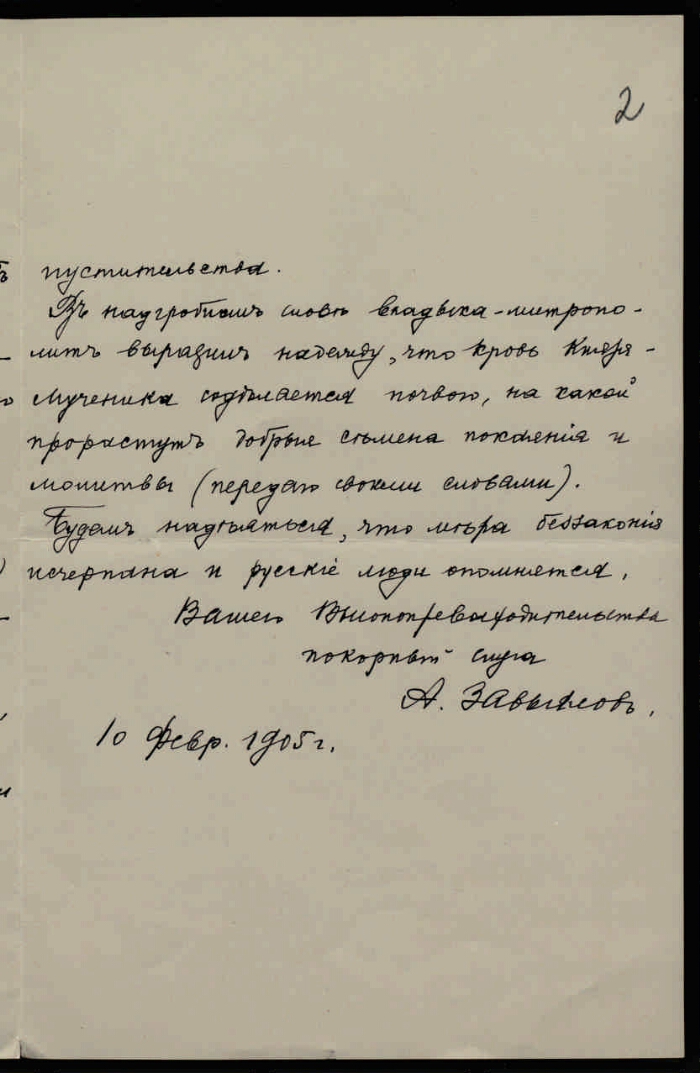 2
пустительства.
Въ надгробномъ словѣ владыка-митропо-
литъ выразилъ надежду, что кровь Князя-
Мученика содѣлается почвою, на какой
прорастутъ добрые сѣмена покаянія и
молитвы (передаю своими словами).
Будемъ надѣяться, что мѣра беззаконія
исчерпана и русскіе люди опомнятся.
Вашего Высокопревосходительства
покорный слуга
А. Завьяловъ.
10 Февр. 1905 г.